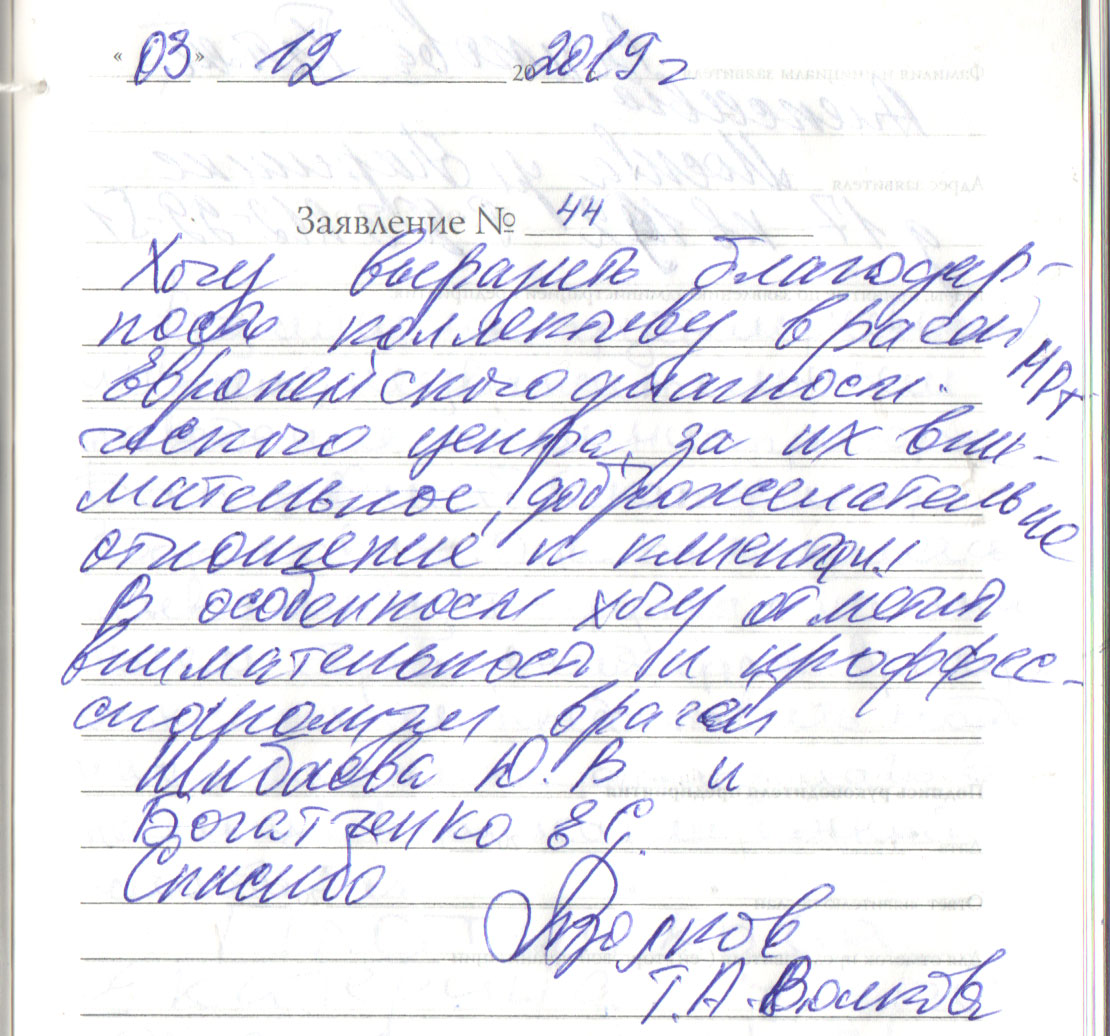 « 03 » 12 20 2019 г
Заявление № 44
Хочу выразить благодар-
ность коллективу врачей МРТ
Европейского диагности-
ческого центра, за их вни-
мательное, доброжелательное
отношение к клиентам
В особенности хочу отметить
внимательность и проффес-
сионализм врачей
Шибаева Ю. В и
Богатченко Е С.
Спасибо
Волков
Т.А. Волкова